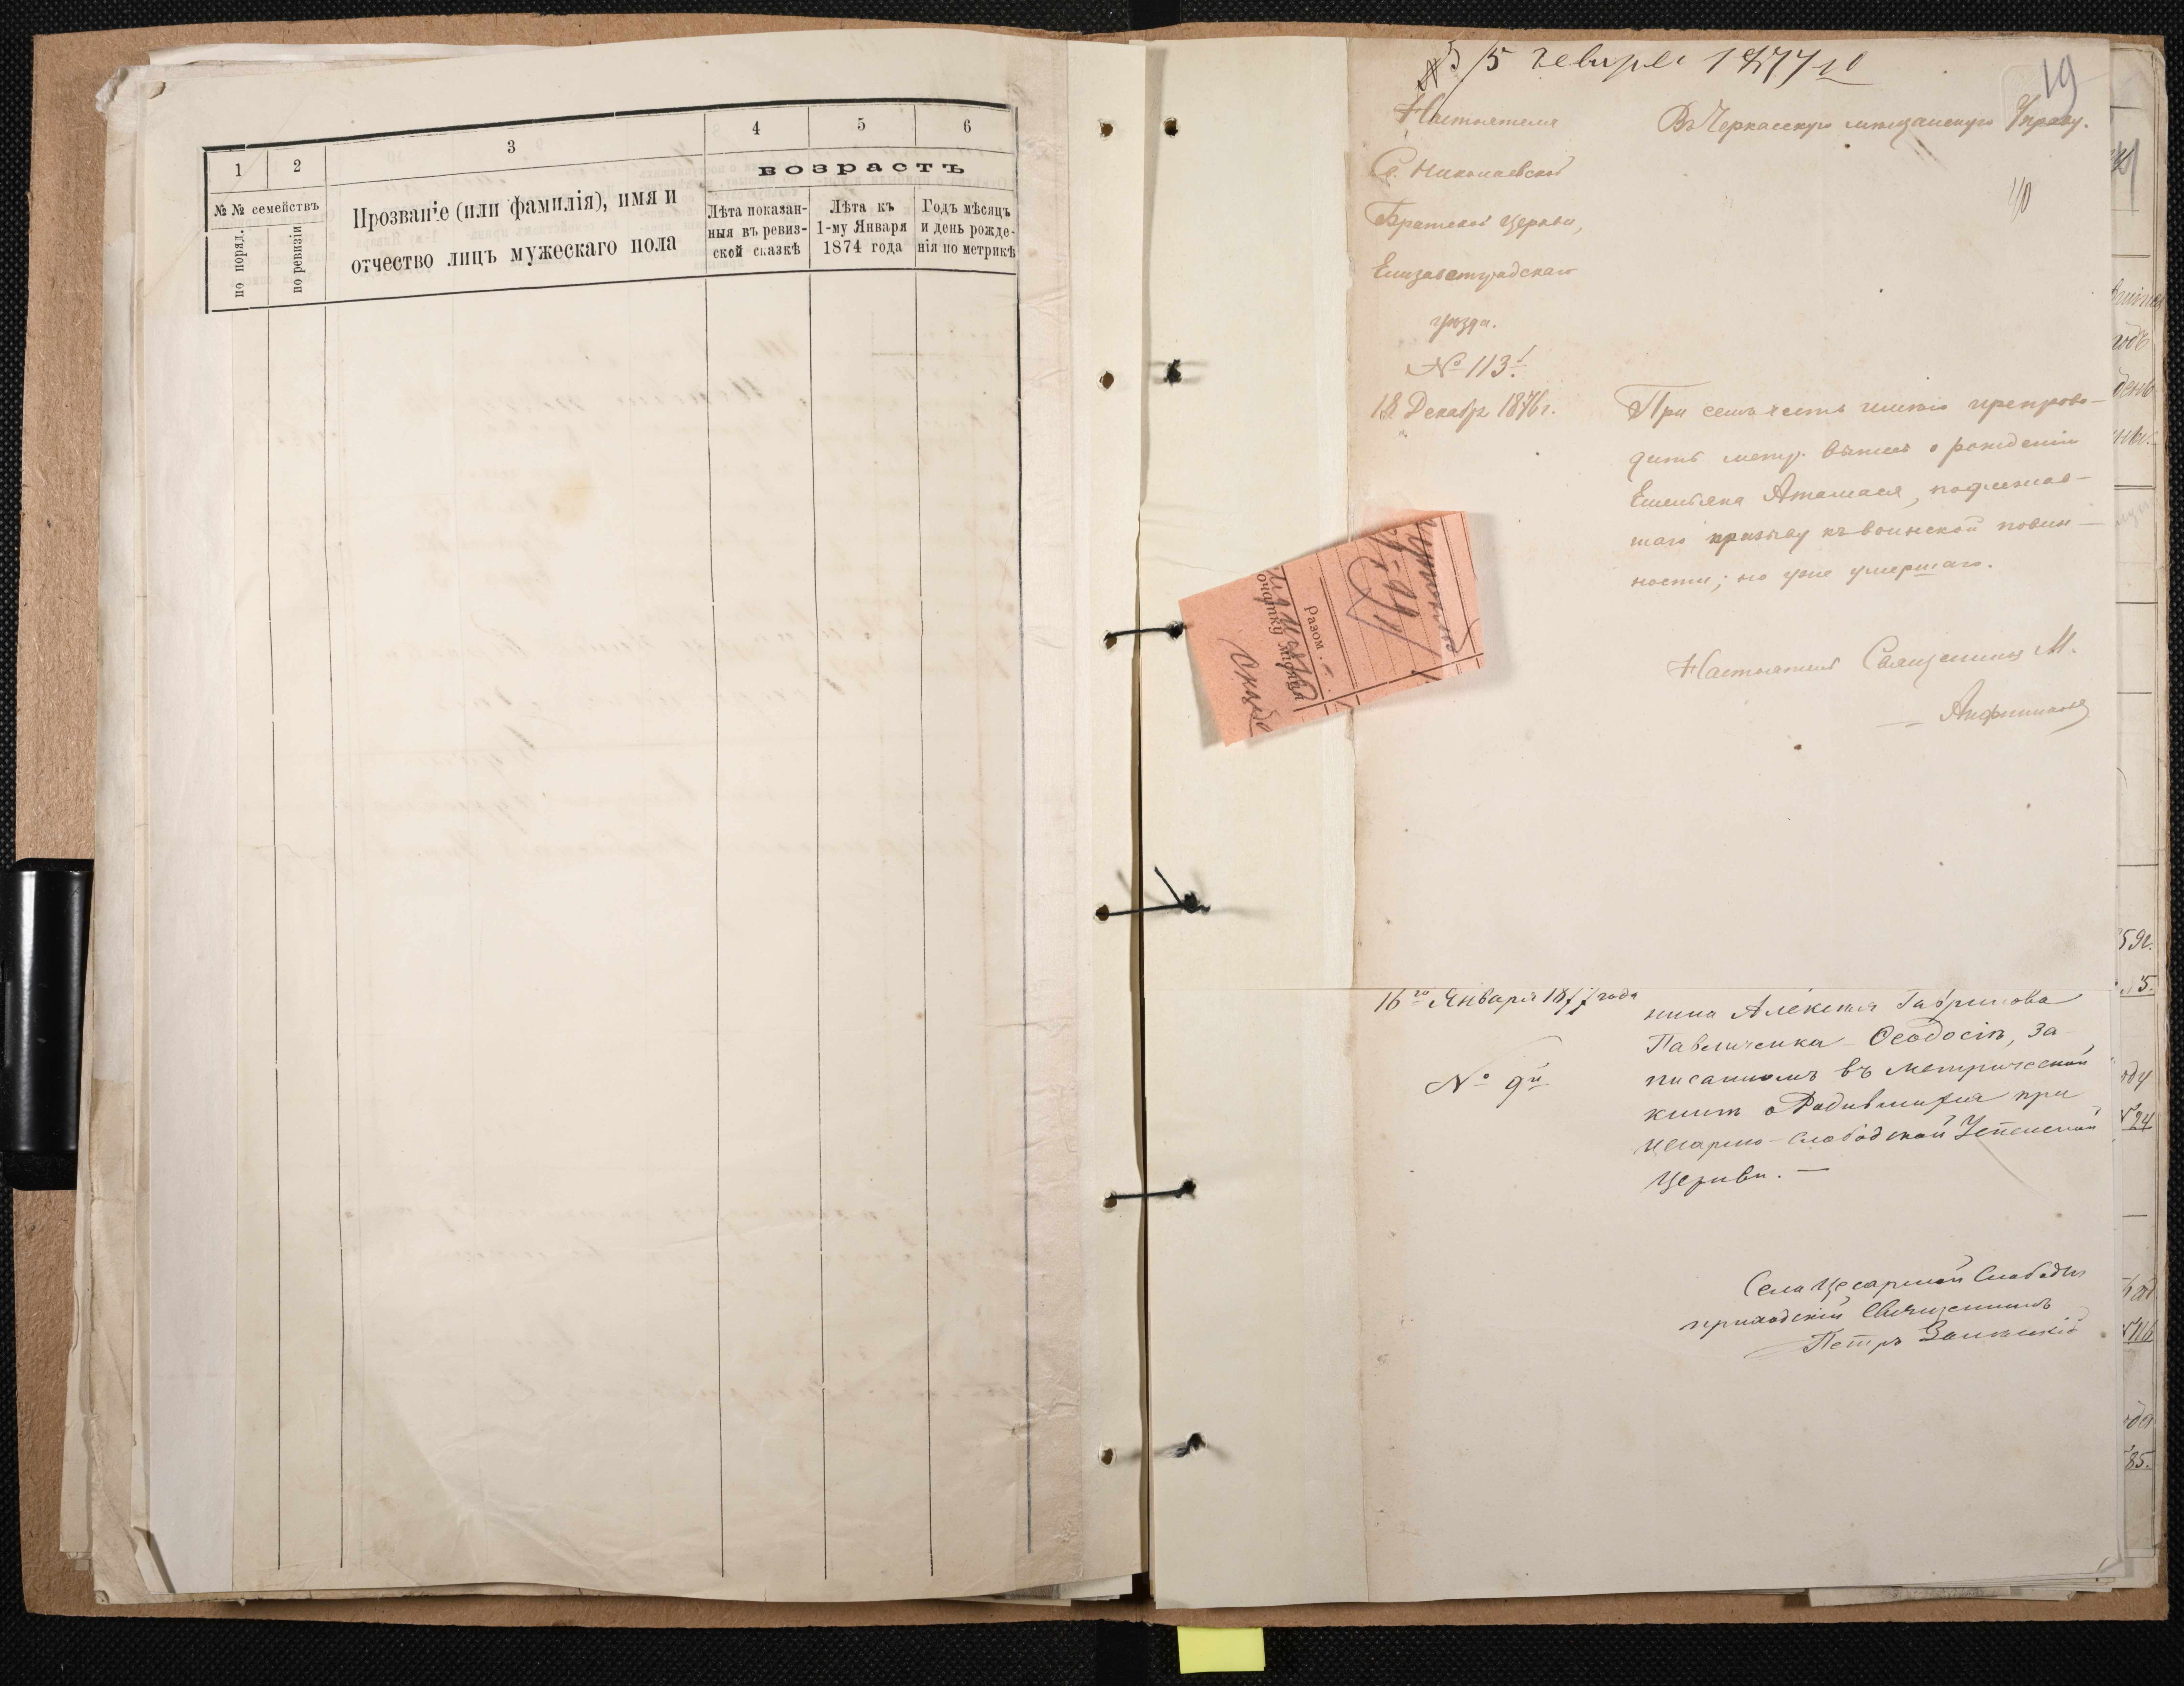 1
2
3
4
5
6
№ № семействъ
по поряд.
по ревизіи
Прозваніе (или фамилія), имя и
отчество лицъ мужескаго пола
возрастъ
Лѣта показан-
ныя въ ревиз-
ской сказкѣ
Лѣта къ
1-му Января
1874 года
Годъ мѣсяцъ
и день рожде-
нія по метрикѣ
5 1877 го
19
Настоятеля
Св. Николаевской
Братской церкви,
Елизаветградскаго
уѣзда.
№ 113
18 Декабр 1876 г.
Въ Черкасскую мѣщанскую Управу.
При семъ честь имѣю препрово-
дить метр. выпись о рожденіи
Емельяна Атамася, подлежав-
шаго призыву къ воинской повин-
ности; но уже умершаго.
Настоятель Священникъ М.
Разом
очатку
16 го Января 1877 года
№ 9й
нина Алексѣя Гаврилова
Павличенка Ѳеодосіѣ, за
писанномъ въ метрической
книгѣ о Родившихся при
Цесарско-Слободской Успенской
Церкви. —
Села Цесарской Слободы
приходскій Священникъ
Петръ